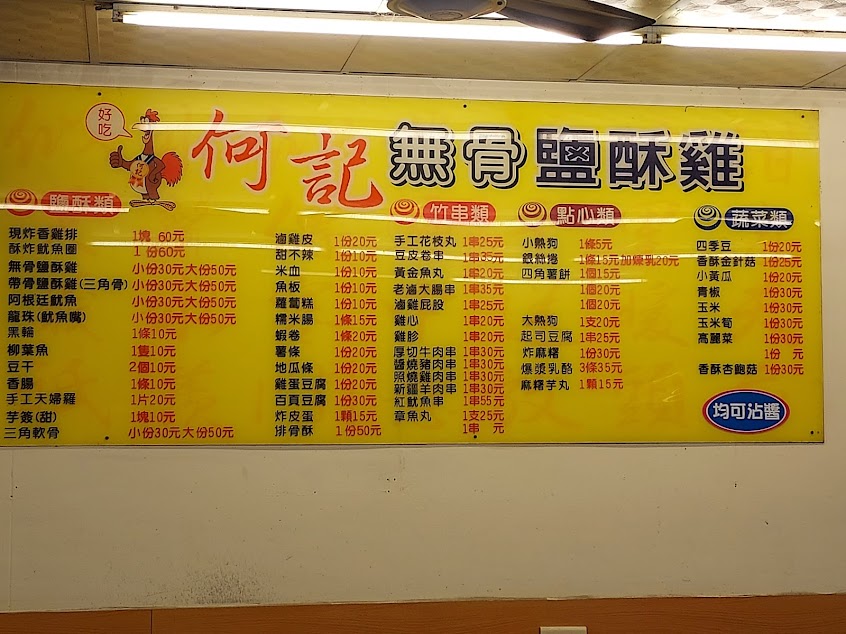 好吃
何記無骨鹽酥雞
鹽酥類
現炸香雞排 1塊 60元
酥炸魷魚圈 1份60元
無骨鹽酥雞 小份30元大份50元
帶骨鹽酥雞(三角骨) 小份30元大份50元
阿根廷魷魚 小份30元大份50元
龍珠(魷魚嘴) 小份30元大份50元
黑輪 1條10元
柳葉魚 1隻10元
豆干 2個10元
香腸 1條10元
手工天婦羅 1片20元
芋簽(甜) 1塊10元
三角軟骨 小份30元大份50元
滷雞皮 1份20元
甜不辣 1份10元
米血 1份10元
魚板 1份10元
蘿蔔糕 1份10元
糯米腸 1條15元
蝦卷 1條20元
薯條 1份20元
地瓜條 1份20元
雞蛋豆腐 1份20元
百頁豆腐 1份30元
炸皮蛋 1顆15元
排骨酥 1份50元
竹串類
手工花枝丸 1串25元
豆皮卷串 1串35元
黃金魚丸 1串20元
老滷大腸串 1串35元
滷雞屁股 1串25元
雞心 1串20元
雞胗 1串20元
厚切牛肉串 1串30元
醬燒豬肉串 1串30元
照燒雞肉串 1串30元
新疆羊肉串 1串30元
紅魷魚串 1串55元
章魚丸 1支25元
1串 元
點心類
小熱狗 1條5元
銀絲捲 1條15元加煉乳20元
四角薯餅 1個15元
1個20元
1個20元
大熱狗 1支20元
起司豆腐 1串25元
炸麻糬 1份30元
爆漿乳酪 3條35元
麻糬芋丸 1顆15元
蔬菜類
四季豆 1份20元
香酥金針菇 1份25元
小黃瓜 1份20元
青椒 1份30元
玉米 1份30元
玉米筍 1份30元
高麗菜 1份30元
1份 元
香酥杏鮑菇 1份30元
均可沾醬